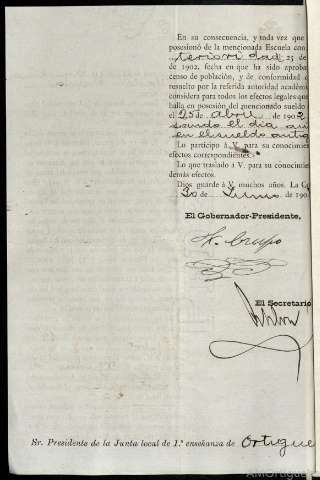 En su consecuencia, y toda vez que
posesionó de la mencionada Escuela con
terioridad, 25 de
de 1902, fecha en que ha sido aproba
censo de población, y de conformidad c
resuelto por la referida autoridad académ
considera para todos los efectos legales que
halla en posesión del mencionado sueldo
el 25 de Abril de 1902
sando el dia an
en el sueldo antig
Lo participo á V. para su conocimie
efectos correspondientes.
Lo que traslado á V. para su conocimie
demás efectos.
Dios guarde á V. muchos años. La C
30 de Junio de 190
El Gobernador-Presidente,
El Secretario
Sr. Presidente de la Junta local de 1.ª enseñanza de Ortigue